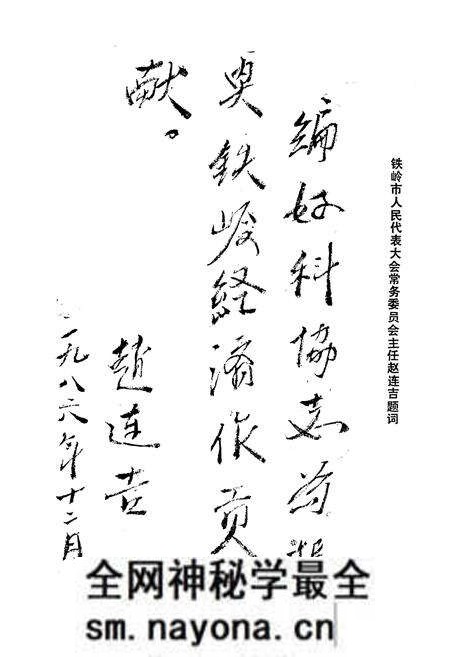 铁岭市人民代表大会常务委员会主任赵连吉题词
编好科協志为振
兴铁岭経濟作贡
献。
趙连吉
一九八六年十二月
全网神秘学最全
sm.nayona.cn